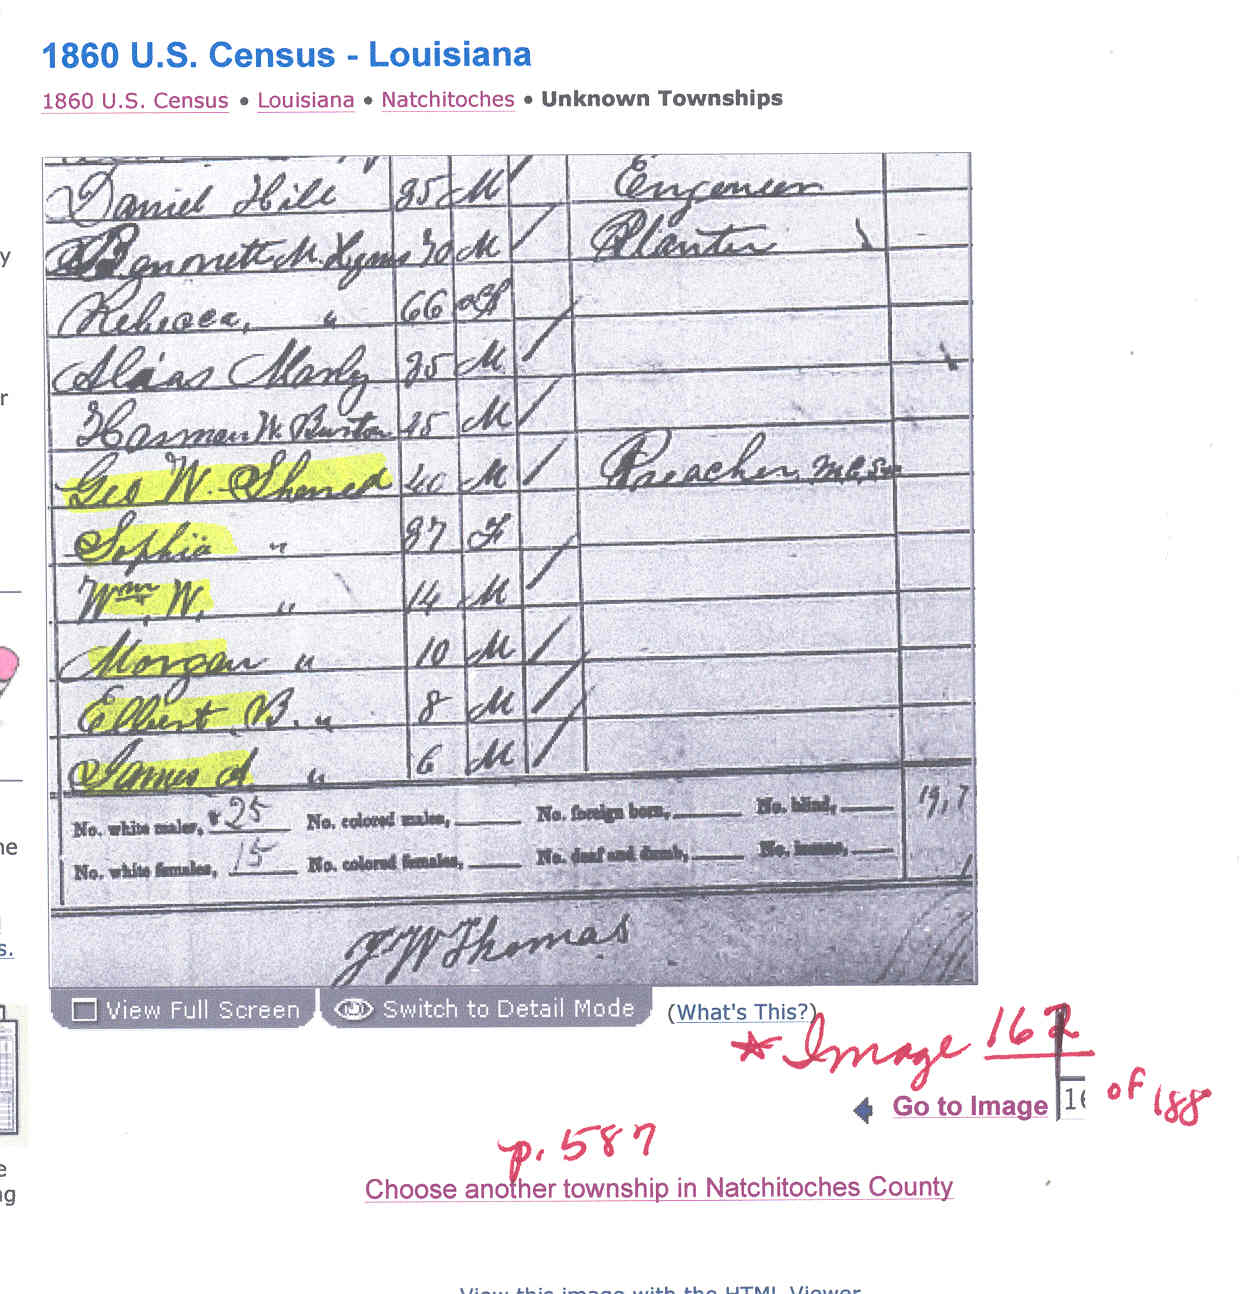 1860 U.S. Census - Louisiana
1860 U.S. Census • Louisiana • Natchitoches • Unknown Townships
Daniel Hill 35 M Engeneer
Bennett M. Hyams 70 M Planter
Rebecca, " 66 F
Marly 35 M
W. Burton M
Geo W. Sherred 40 M Preacher, M.E.
Sophia " 37 F
Wm. W. " 14 M
Morgan " 10 M
Elbert B. " 8 M
James A " 6 M
No. white males, 25 No. colored males, No. foreign born, No. blind,
No. white females, 15 No. colored females, No. deaf and dumb, No. insane,
J W Thomas
View Full Screen Switch to Detail Mode (What's This?)
* Image 162
Go to Image 16 of 188
p. 587
Choose another township in Natchitoches County
View this image with the HTML Viewer
y
r
ne
s.
e
ng